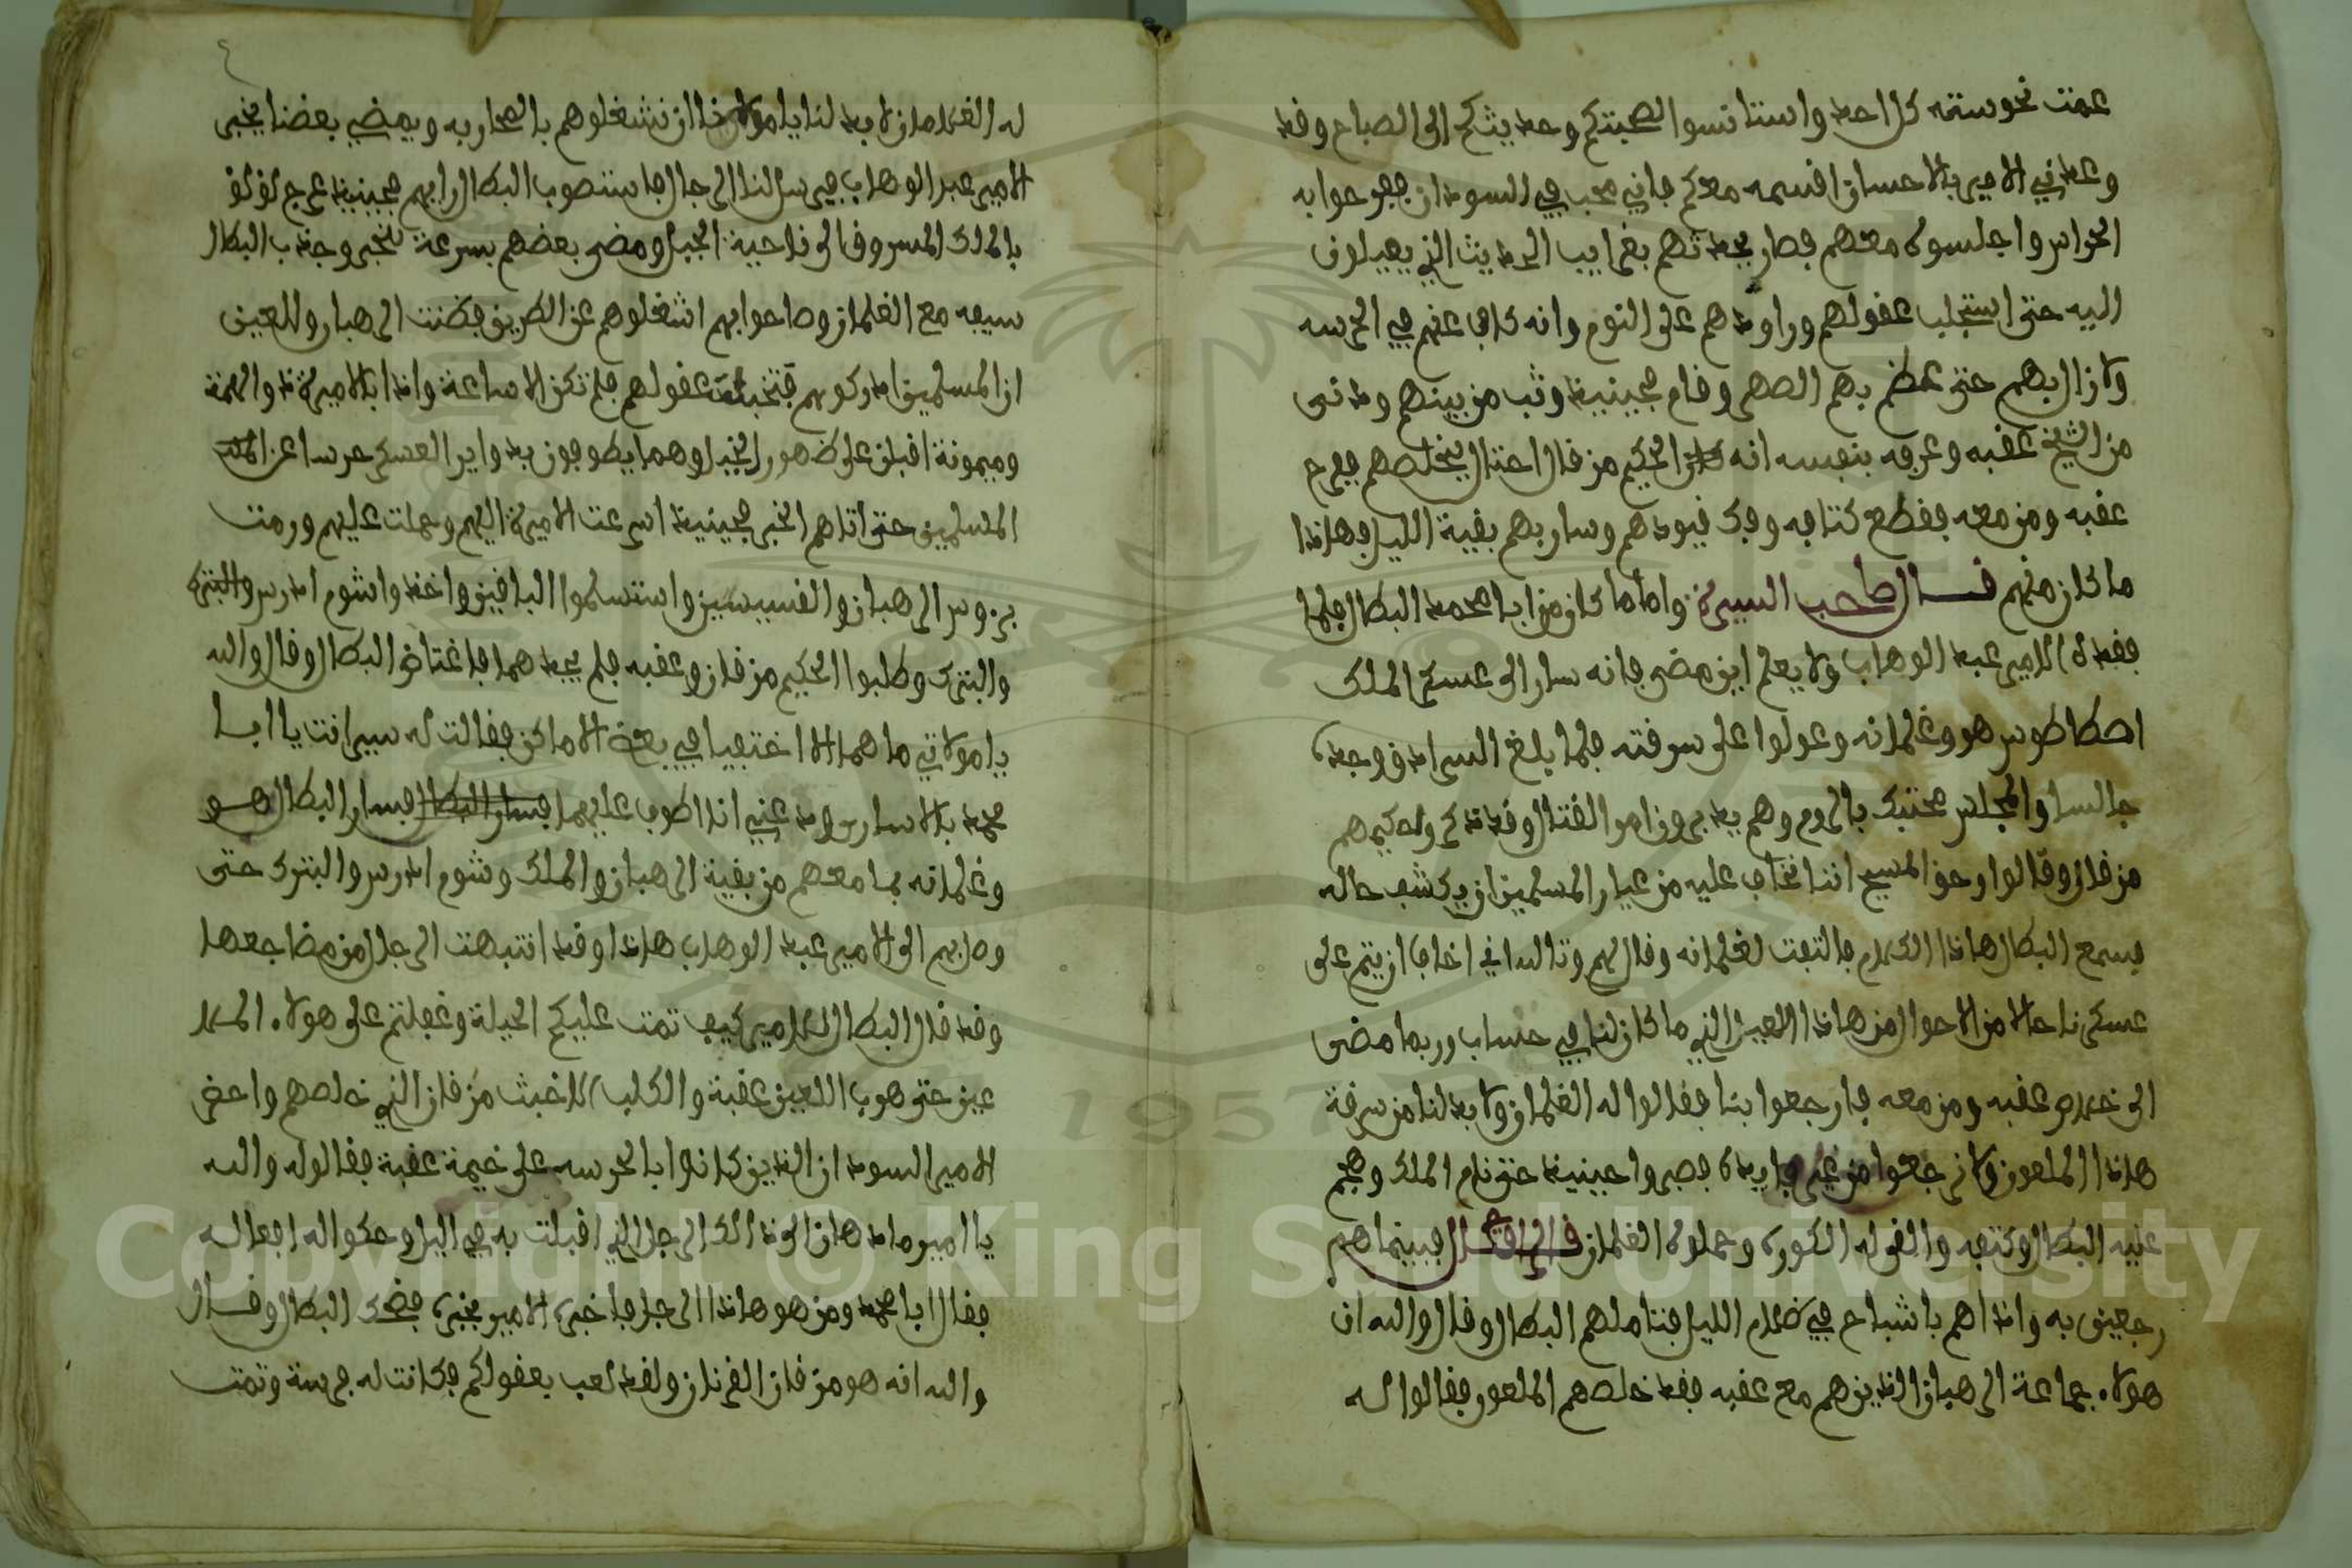 عمت نحوسته كل احد واستانسوا لصحبتكم وحديثكم الى الصباح وقد
وعدني الامير بالاحسان اقسمه معكم فاني محب في السودان ففرحوا به
الحراس واجلسوه معهم فصار يحدثهم بغرايب الحديث الذي يميلون
اليه حتى استجلب عقولهم وراودهم على النوم وانه كاف عنهم في الحرسه
ولا زال بهم حتى عظم بهم السهر وقام فحينيذ وثب من بينهم ودنى
من الشيخ عقبه وعرفه بنفسه انه الحكيم مرقان احتال ليخلصهم ففرح
عقبه ومن معه فقطع كتافه وفك قيودهم وسار بهم بقية الليل فهاذا
ما كان منهم قال صاحب السيرة واما ما كان من ابا محمد البطال فلما
فقده الامير عبد الوهاب ولا يعلم اين مضى فانه سار الى عسكر الملك
اصطاطوس هو وغلمانه وعولوا على سرقته فلما بلغ السرادق وجده
جالسا والمجلس محتبك بالروم وهم يدبرون امر القتال وقد ذكروا حكيمهم
مرقان وقالوا وحق المسيح اننا نخاف عليه من عيار المسلمين ان يكشف حاله
فسمع البطال هاذا الكلام فالتفت لغلمانه وقال لهم وتالله اني اخاف ان يتم على
عسكرنا حالا من الاحوال من هاذا اللعين الذي ما كان لنا في حساب وربما مضى
الى خلاص عقبه ومن معه فارجعوا بنا فقالوا له الغلمان ولا بد لنا من سرقة
هاذا الملعون ولا نرجعوا من غير فايده فصبروا حينيذ حتى نام الملك وهجم
عليه البطال وكتفه والقى له الكوره وحملوه الغلمان قال الراوي فبينما هم
رجعين به واذا هم باشباح في ظلام الليل فتاملهم البطال وقال والله ان
هولاء جماعة الرهبان الذين هم مع عقبه فقد خلصهم الملعون فقالوا له
له الغلمان لا بد لنا يا مولانا ان نشغلوهم بالمحاربه ويمضي بعضنا يخبر
الامير عبد الوهاب فيرسل لنا الرجال فاستصوب البطال رايهم فحينيذ عرج لولو
بالملك المسروق الى ناحية الجبل ومضى بعضهم بسرعة للخبر وجذب البطال
سيفه مع الغلمان وصاحوا بهم اشغلوهم عن الطريق فظنت الرهبان واللعين
ان المسلمين ادركوهم فتخبلت عقولهم فلم تكن الا ساعة واذا بالاميرة ذو الهمة
وميمونة اقبلن على ظهور الخيل وهما يطوفون بدواير العسكر حرسا على
المسلمين حتى اتاهم الخبر فحينيذ اسرعت الاميرة اليهم وحملت عليهم ورمت
بروس الرهبان والقسيسين واستسلموا الباقين واخذوا شوم ادرس والبترك
والبترك وطلبوا الحكيم مرقان وعقبه فلم يجدهما فاغتاض البطال وقال والله
يا مولاتي ما هما الا اختفيا في بعض الاماكن فقالت له سير انت يا ابا
محمد بالاسارى ودعني انا اطوف عليهما فسار البطال فسار البطال هو
وغلمانه بما معهم من بقية الرهبان والملك وشوم ادرس والبترك حتى
وصل بهم الى الامير عبد الوهاب هاذا وقد انتبهت الرجال من مضاجعها
وقد قال البطال للامير كيف تمت عليكم الحيلة وغفلتم على هولاء الملا
عين حتى هرب اللعين عقبة والكلب الاخبث مرقان الذي خلصهم واحضر
الامير السودان الذين كانوا بالحرسه على خيمة عقبة فقالوا له والله
يا امير ما دهانا الا ذالك الرجل الذي اقبلت به في اليل وحكوا له افعاله
فقال ابا محمد ومن هو هاذا الرجل فاخبره الامير بخبره فضحك البطال وقال
والله انه هو مرقان القرنان ولقد لعب بعقولكم فكانت له فرسة وتمت